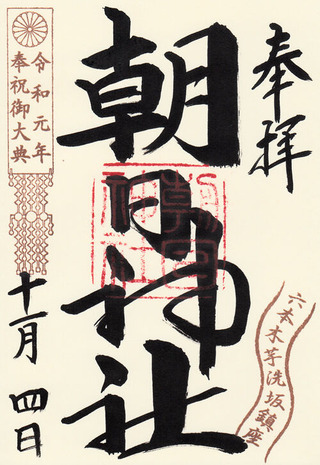 奉拝
六本木芋洗坂鎮座
朝日神社
朝日神社
令和元年
奉祝御大典
十一月四日